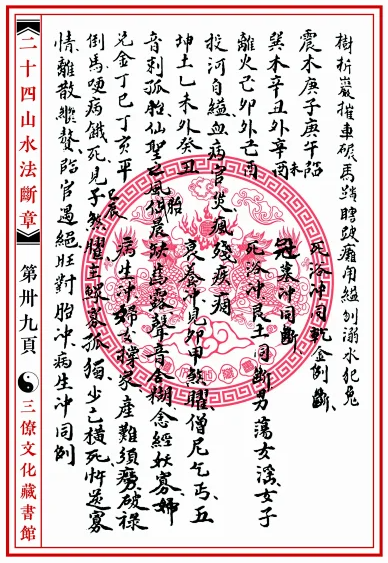 樹折巖摧車碾馬踏瞎跛癱用縊刎溺水犯兔
死浴冲同乾金例斷
震木庚子庚午臨
巽木辛丑外辛酉未
冠衰冲同斷
離火己卯外己酉
死浴冲艮土同斷男蕩女淫女子
投河自縊血病官災瘋殘疾痼
坤土乙未外癸丑
胎衰養冲見卯甲煞曜僧尼乞丐五
音刺孤胎仙聖巳風伯晨跃馬露聲音含糊念經妖寡婦
兌金丁巳丁亥平
病生冲婦女操家產難須勞破祿
倒馬哽病餓死見子煞曜主鰥寡孤獨少亡橫死忤逆寡
巳辰
情離散縱驁臨官遇絕旺對胎冲病生冲同例
二十四山水法斷章
第卅九頁
三僚文化藏書館